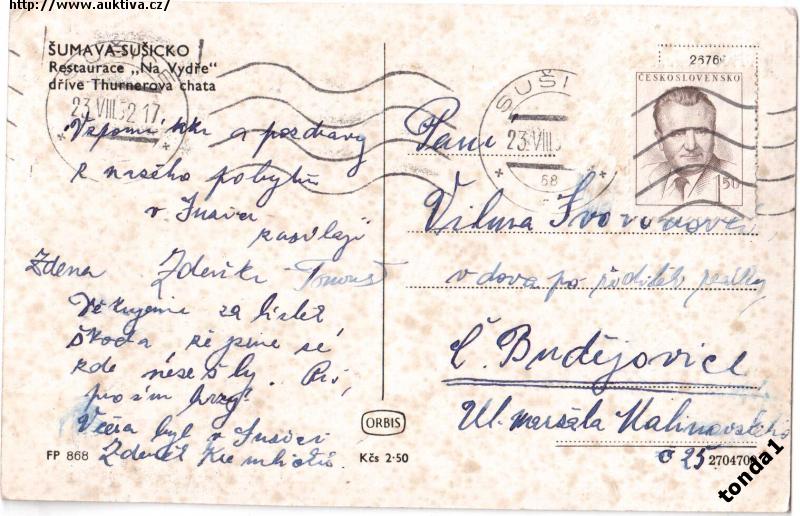 http://www.auktiva.cz/
ŠUMAVA-SUŠICKO
Restaurace „Na Vydře"
dříve Thurnerova chata
23.VIII.52.17
Vzpomínku a pozdravy
z našeho pobytu
v Sušici
zasílají
Zdena Zdeněk
Děkujeme za lístek
škoda že jsme se
zde nesešly. Piš,
prosím brzy!
Včera byl v Sušici
Zdeněk
FP 868
ORBIS
Kčs 2·50
SUŠI
23.VIII.5
68
2676
ČESKOSLOVENSKO
1.50
Paní
Vilma Svobodová
vdova po řediteli
Č. Budějovice
Ul. maršála Malinovského
č 25
270470
tonda1